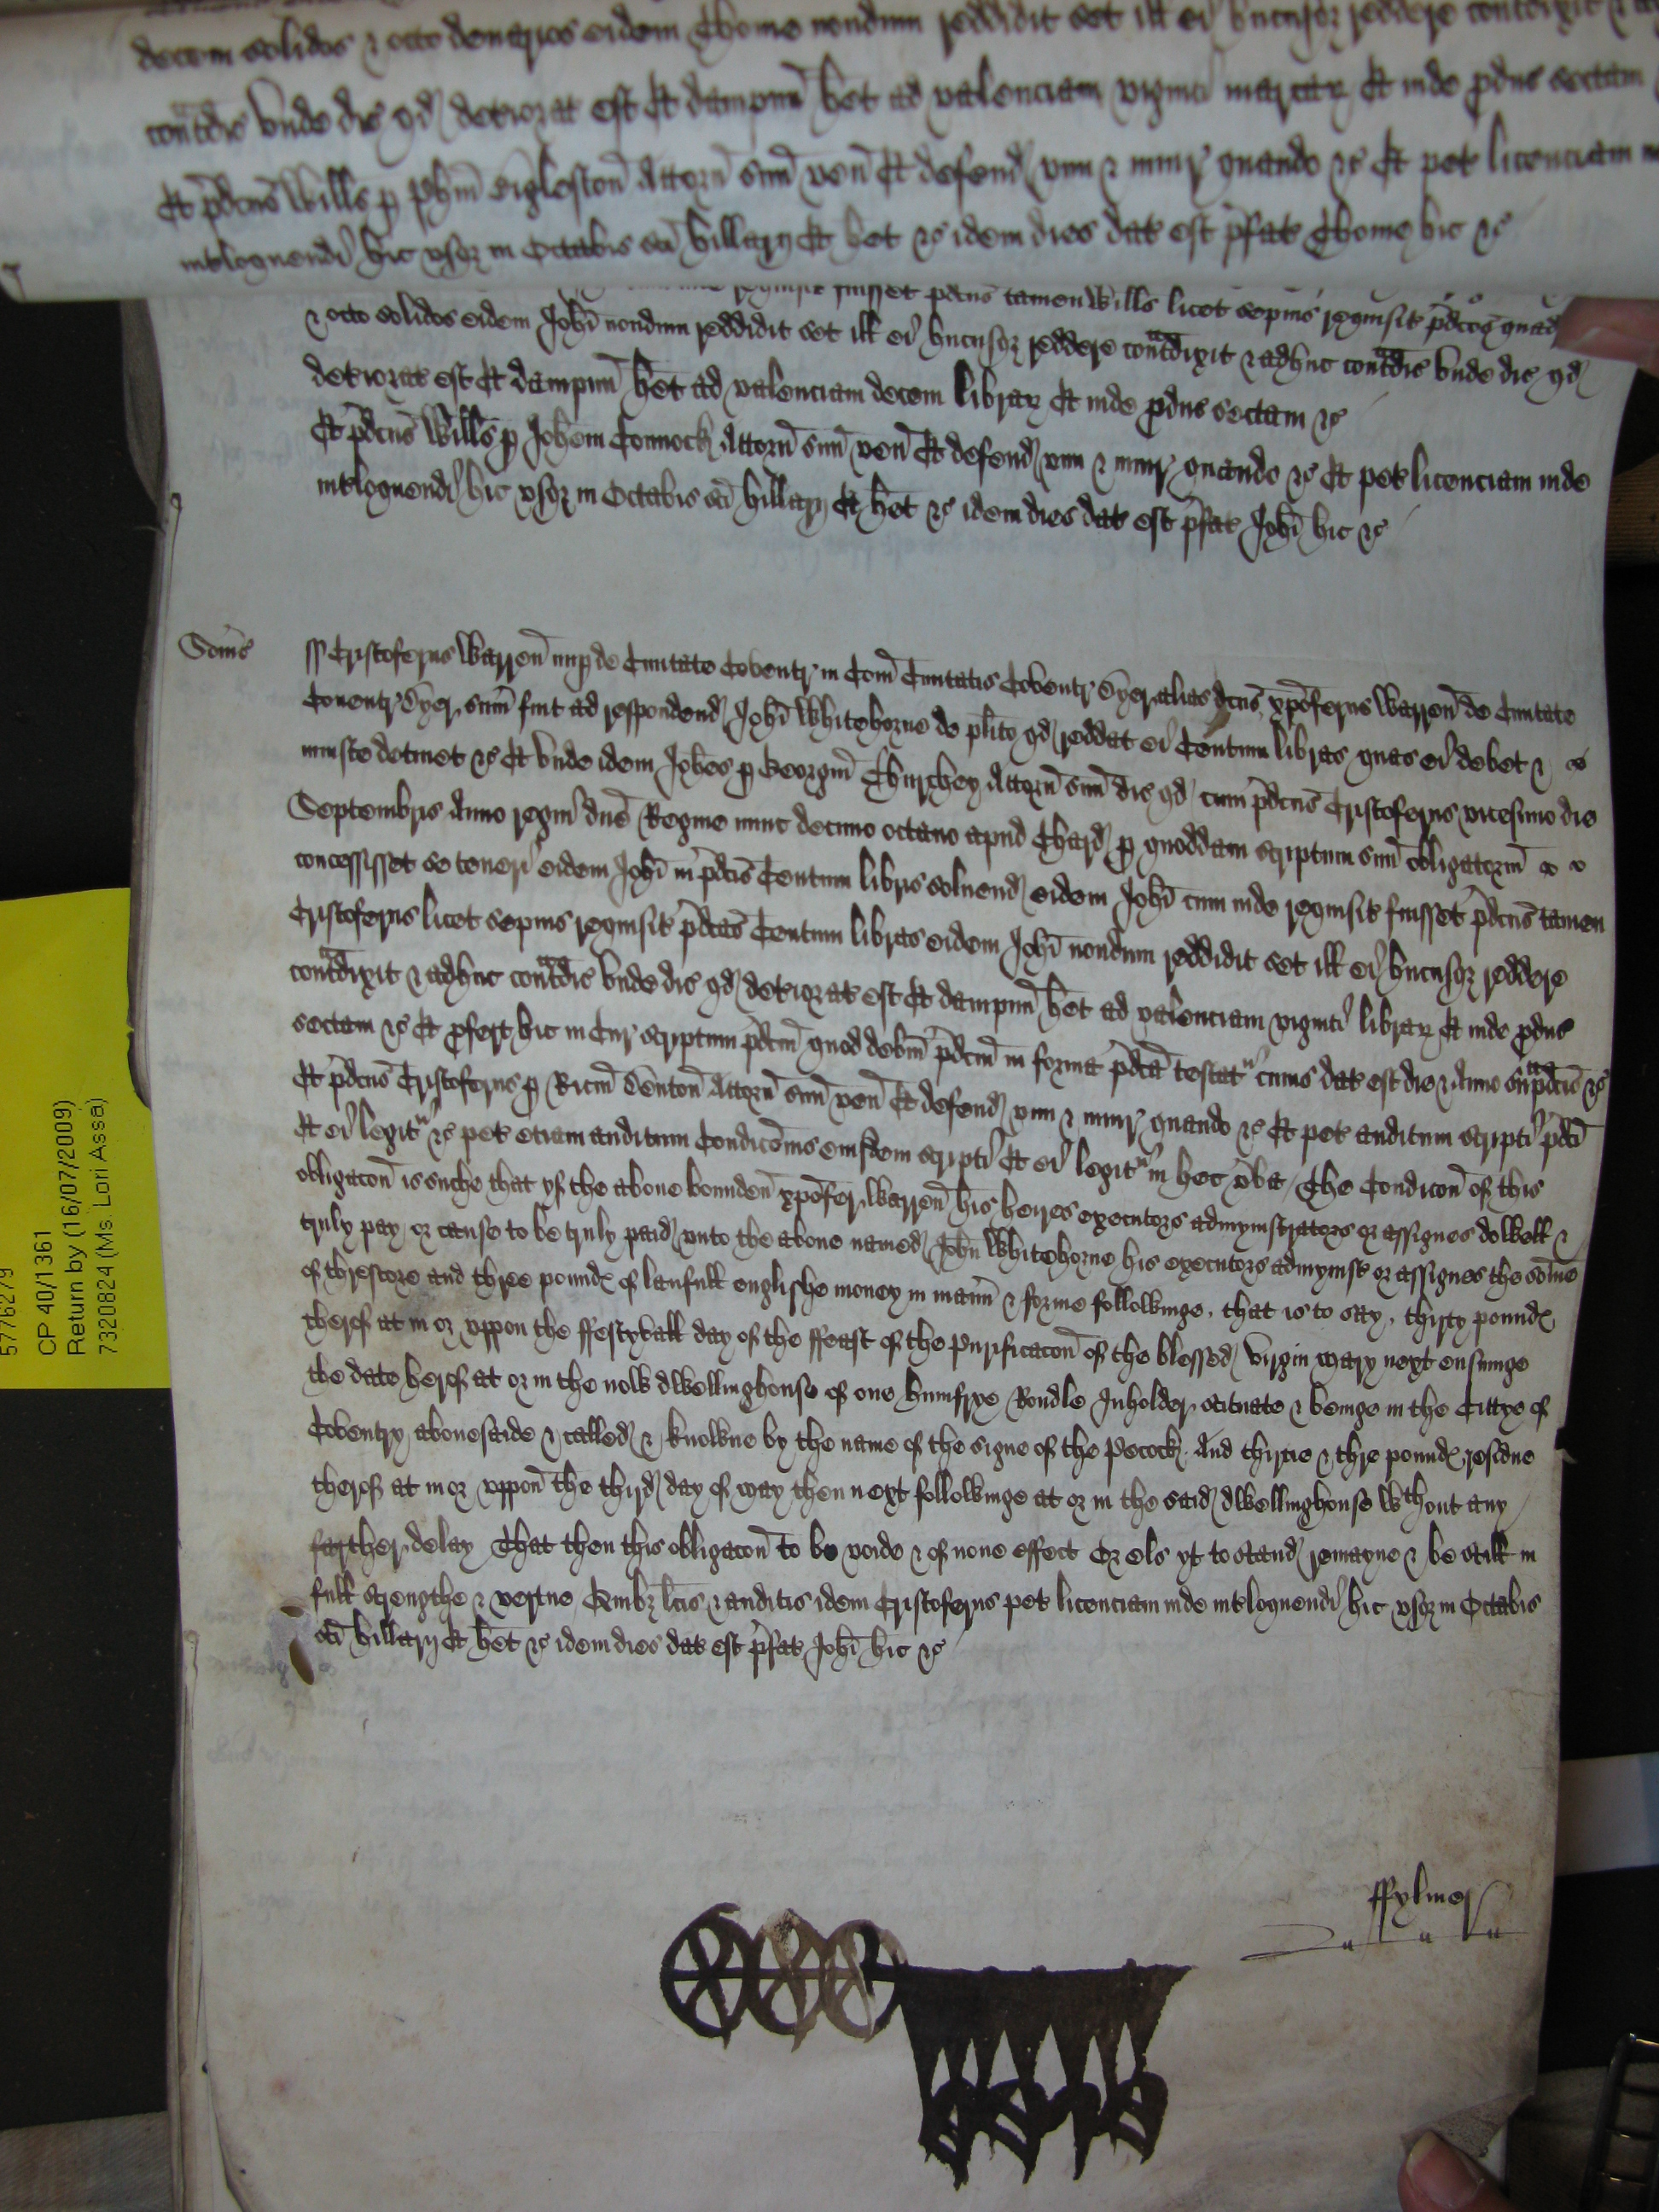 decem solidos & octo denarios eidem Thome nondum reddidit set ill ei hucusq reddere contradixit &
contradic unde dic qd deteriorat est Et dampnu het ad valenciam viginti marcar Et inde pduc sectam
Et pdcus Willus p Phm Egleston Attorn suu ven Et defend vim & iniur quando &c Et pet licenciam
intloquendi hic usq in Octabis sci hillarij Et het &c idem dies dat est pfat Thome hic &c
requisit fuisset pdcus tamen Willus licet sepius requisit pdcos quad
& octo solidos eidem Johi nondum reddidit set ill ei hucusq reddere contradixit & adhuc contradic unde dic qd
deteriorat est Et dampnu het ad valenciam decem librar Et inde pduc sectam &c
Et pdcus Willus p Johem Connock Attorn suu ven Et defend vim & iniur quando &c Et pet licenciam inde
intloquendi hic usq in Octabis sci hillarij Et het &c idem dies dat est pfat Johi hic &c
Soms
ss Cristoferus Warren nup de Civitate Coventr in Com Civitatis Coventr Dyer alias dcus xpoferus Warren de Civitate
Coventr Dyer sum fuit ad respondend Johi Whitehorne de plito qd reddat ei Centum libras quas ei debet &
iniuste detinet &c Et unde idem Johes p Georgiu Churchey Attorn suu dic qd cum pdcus Cristoferus vicesimo die
Septembris Anno regni dne Regine nunc decimo octavo apud Chard p quoddam scriptum suu obligatoriu
concessisset se teneri eidem Johi in pdcis Centum libris solvend eidem Johi cum inde requisit fuisset pdcus tamen
Cristoferus licet sepius requisit pdcas Centum libras eidem Johi nondum reddidit set ill ei hucusq reddere
contradixit & adhuc contradic unde dic qd deteriorat est Et dampnu het ad valenciam viginti librar Et inde pduc
sectam &c Et pfert hic in Cur scriptum pdcm quod debm pdcm in forma pdca testatur cuius dat est die & Anno supradcis &c
Et pdcus Cristoferus p Ricm Denton Attorn suu ven Et defend vim & iniur quando &c Et pet auditum scripti pdci
Et ei legitur &c pet etiam auditum Condicois eiusdem scripti Et ei legitur in hec vba The Condicon of this
obligacon is suche that yf the above bounden xpofer Warren his heires executors admynistrators or assignes do well &
truly pay or cause to be truly paid unto the above named John Whitehorne his executors admynist or assignes the some
of threscore and three pounds of laufull englishe money in mann & forme followinge. that is to say. thirty pounds
therof at in or uppon the ffestyvall day of the ffeast of the Purificacon of the blessed Virgin Mary next ensuinge
the date herof at or in the now dwellinghouse of one humfrye Rondle Inholder scituate & beinge in the Cittye of
Coventry abovesaide & called & knowne by the name of the signe of the Pecock. And thirtie & thre pounds residue
therof at in or uppon the third day of May then next followinge at or in the said dwellinghouse wthout any
farther delay That then this obligacon to be voide & of none effect Or els yt to stand remayne & be still in
full strengthe & vertue Quibz lcis & auditis idem Cristoferus pet licenciam inde intloquendi hic usq in Octabis
sci hillarij Et het &c idem dies dat est pfat Johi hic &c
ffylmer
5776279
CP 40/1361
Return by (16/07/2009)
73208824 (Ms. Lori Assa)